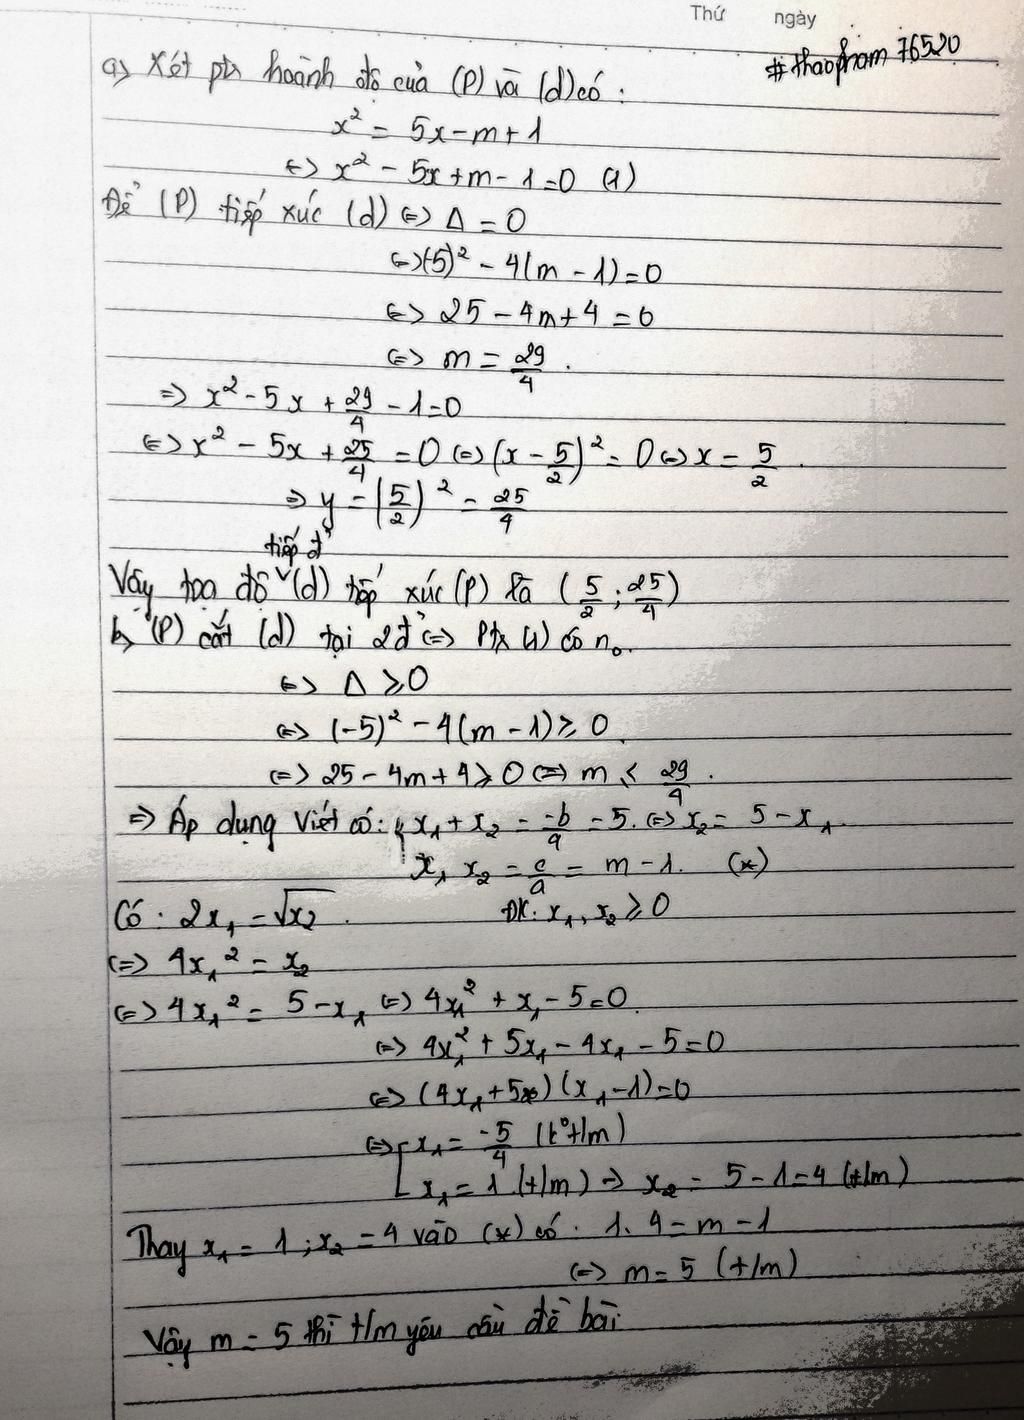 Thứ ngày
#thaopham76520
a, Xét ptr hoành độ của (P) và (d) có :
x² = 5x - m + 1
<=> x² - 5x + m - 1 = 0 (1)
Để (P) tiếp xúc (d) <=> Δ = 0
<=> (-5)² - 4(m - 1) = 0
<=> 25 - 4m + 4 = 0
<=> m = 29/4 .
=> x² - 5x + 29/4 - 1 = 0
<=> x² - 5x + 25/4 = 0 <=> (x - 5/2)² = 0 <=> x = 5/2 .
=> y = (5/2)² = 25/4
tiếp đ'
Vậy tọa độ ˅ (d) tiếp xúc (P) là (5/2 ; 25/4)
b, (P) cắt (d) tại 2đ' <=> Ptr (1) có n₀.
<=> Δ ⩾ 0
<=> (-5)² - 4(m - 1) ⩾ 0
<=> 25 - 4m + 4 ⩾ 0 <=> m ⩽ 29/4 .
=> Áp dụng Viét có: { x₁ + x₂ = -b/a = 5. <=> x₂ = 5 - x₁
x₁ x₂ = c/a = m - 1. (*)
Có : 2x₁ = √x₂ . ĐK: x₁, x₂ ⩾ 0
<=> 4x₁² = x₂
<=> 4x₁² = 5 - x₁ <=> 4x₁² + x₁ - 5 = 0
<=> 4x₁² + 5x₁ - 4x₁ - 5 = 0
<=> (4x₁ + 5)(x₁ - 1) = 0
<=> [ x₁ = -5/4 (k° t/m)
x₁ = 1 (t/m) => x₂ = 5 - 1 = 4 (t/m)
Thay x₁ = 1 ; x₂ = 4 vào (*) có : 1. 4 = m - 1
<=> m = 5 (t/m)
Vậy m = 5 thì t/m yêu cầu đề bài